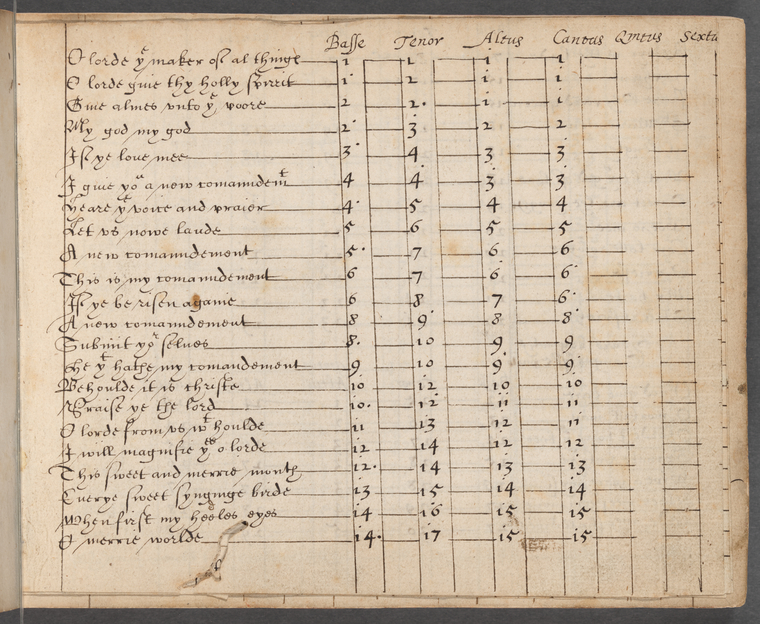 Basse Tenor Altus Cantus Qintus Sextu
O lorde yᵉ maker of al thinge 1 1 1 1
O lorde giue thy holly spirrit 1 2 1 1
Giue almes vnto yᵉ poore 2 2 1 1
My god my god 2 3 2 2
If ye loue mee 3 4 3 3
I giue yoᵘ a new comanndemᵗ 4 4 3 3
heare yᵉ voice and praier 4 5 4 4
Let vs nowe laude 5 6 5 5
A new comanndement 5 7 6 6
This is my comanndement 6 7 6 6
If ye be risen againe 6 8 7 6
A new comanndement 8 9 8 8
Submit yoʳ selues 8 10 9 9
he yᵗ hathe my comandement 9 10 9 9
Behoulde it is christe 10 12 10 10
Praise ye the lord 10 12 11 11
O lorde from vs wᵗ houlde 11 13 12 11
I will magnifie yᵉᵉ o lorde 12 14 12 12
This sweet and merrie month 12 14 13 13
Euerye sweet synginge birde 13 15 14 14
When first my heedles eyes 14 16 15 15
O merrie worlde 14 17 15 15